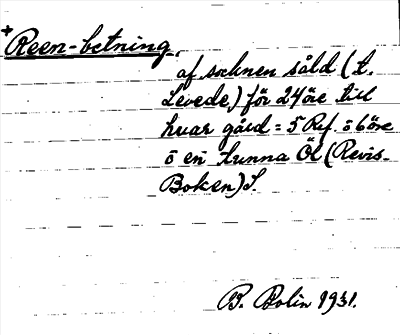 +
Reen-betning
af socknen såld (t.
Levede) för 24 öre till
huar gård = 5 Rd. ö 6 öre
ö en tunna Öl (Revis-
Boken) S.
B. Bolin 1931.